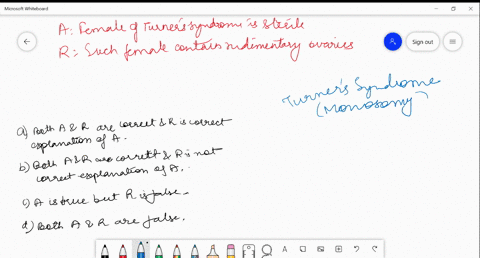 Microsoft Whiteboard
A: Female of Turner's syndrome is sterile
R: Such female contains rudimentary ovaries
Sign out
Turner's Syndrome
(Monosomy)
a) Both A & R are correct & R is correct
explanation of A.
b) Both A & R are correct & R is not
correct explanation of A.
c) A is true but R is false.
d) Both A & R are false.